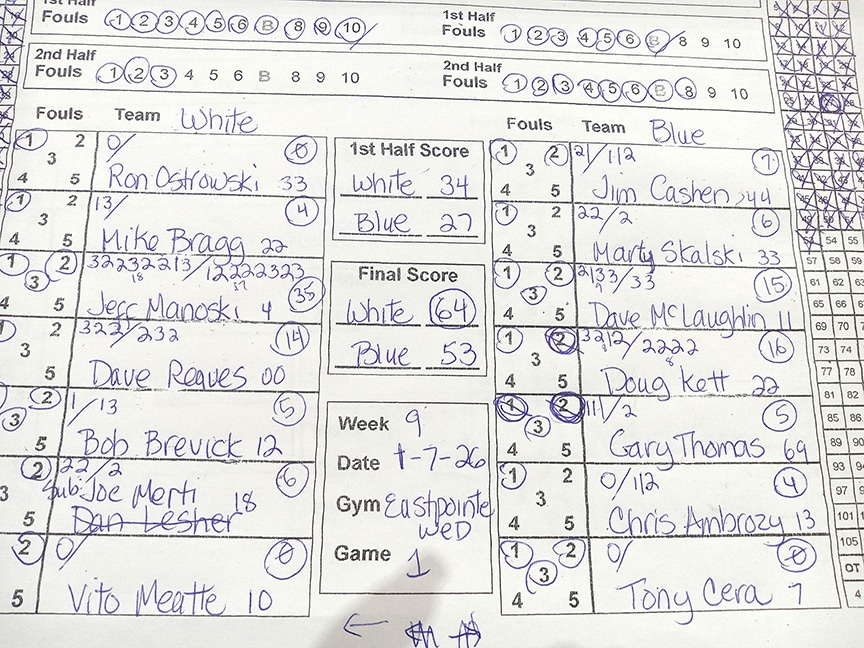 1st Half
Fouls 1 2 3 4 5 6 B 8 9 10
1st Half
Fouls 1 2 3 4 5 6 B 8 9 10
2nd Half
Fouls 1 2 3 4 5 6 B 8 9 10
2nd Half
Fouls 1 2 3 4 5 6 B 8 9 10
Fouls Team White
1 2 3 4 5
0/ 0
Ron Ostrowski 33
1 2 3 4 5
13/ 4
Mike Bragg 22
1 2 3 4 5
35
Jeff Manoski 4
2 3 5
322/232 14
Dave Reaves 00
2 3 5
1/13 5
Bob Brevick 12
2 3 5
22/2 6
Sub: Joe Merti 18
Dan Lesher
2 5
0/ 0
Vito Meatte 10
1st Half Score
White 34
Blue 27
Final Score
White 64
Blue 53
Week 9
Date 1-7-26
Gym Eastpointe
WED
Game 1
Fouls Team Blue
1 2 3 4 5
21/112 7
Jim Cashen 44
1 2 3 4 5
22/2 6
Marty Skalski 33
1 2 3 4 5
2133/33 15
Dave McLaughlin 11
1 2 3 4 5
3212/2222 16
Doug Kett 22
1 2 3 4 5
111/2 5
Gary Thomas 69
1 2 3 4 5
0/112 4
Chris Ambrozy 13
1 2 3 4 5
0/ 0
Tony Cera 7
54 55
57 58 59
61 62 63
65 66 67
69 70
73 74
77 78
81 82
85 86
89 90
93 94
97
101
105
OT
4